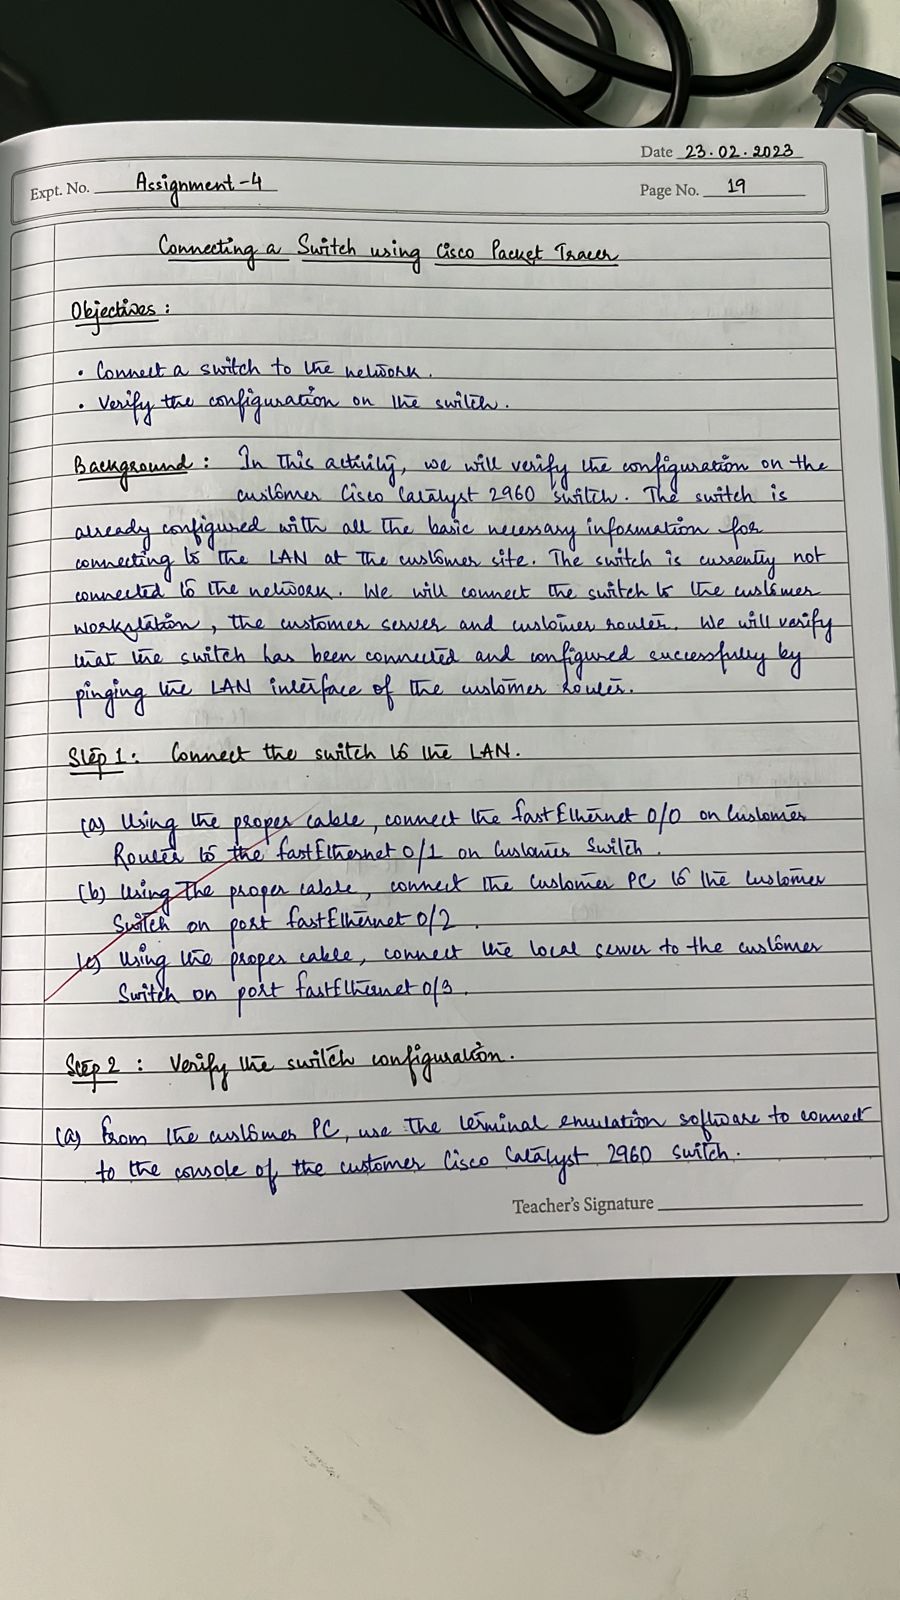 Date 23.02.2023
Expt. No. Assignment-4
Page No. 19
Connecting a Switch using Cisco Packet Tracer
Objectives :
• Connect a switch to the network.
• Verify the configuration on the switch.
Background : In this activity, we will verify the configuration on the
customer Cisco Catalyst 2960 switch. The switch is
already configured with all the basic necessary information for
connecting to the LAN at the customer site. The switch is currently not
connected to the network. We will connect the switch to the customer
workstation, the customer server and customer router. We will verify
that the switch has been connected and configured successfully by
pinging the LAN interface of the customer router.
Step 1: Connect the switch to the LAN.
(a) Using the proper cable, connect the fastEthernet 0/0 on Customer
Router to the fastEthernet 0/1 on Customer Switch.
(b) Using the proper cable, connect the Customer PC to the Customer
Switch on port fastEthernet 0/2.
(c) Using the proper cable, connect the local server to the customer
Switch on port fastEthernet 0/3.
Step 2 : Verify the switch configuration.
(a) From the customer PC, use the terminal emulation software to connect
to the console of the customer Cisco Catalyst 2960 switch.
Teacher's Signature